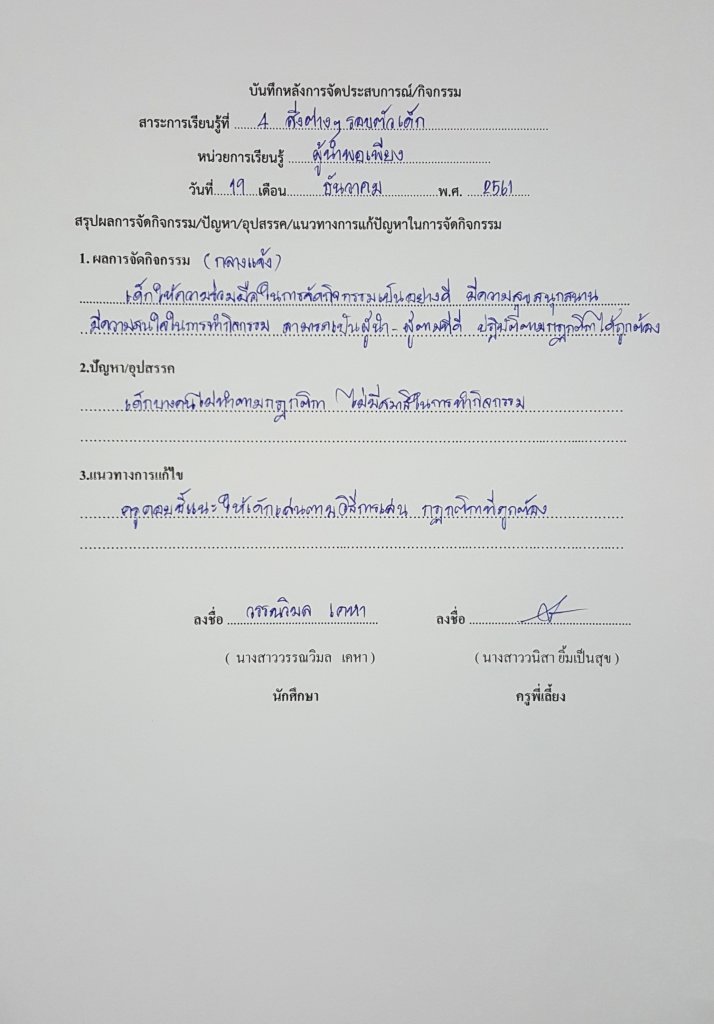 บันทึกหลังการจัดประสบการณ์/กิจกรรม
สาระการเรียนรู้ที่ 4 สิ่งต่างๆรอบตัวเด็ก
หน่วยการเรียนรู้ ผู้นำพอเพียง
วันที่ 19 เดือน ธันวาคม พ.ศ. 2561
สรุปผลการจัดกิจกรรม/ปัญหา/อุปสรรค/แนวทางการแก้ปัญหาในการจัดกิจกรรม
1. ผลการจัดกิจกรรม (กลางแจ้ง)
เด็กให้ความร่วมมือในการจัดกิจกรรมเป็นอย่างดี มีความสุขสนุกสนาน
มีความสนใจในการทำกิจกรรม สามารถเป็นผู้นำ-ผู้ตามที่ดี ปฏิบัติตามกฎกติกาได้ถูกต้อง
2.ปัญหา/อุปสรรค
เด็กบางคนไม่ทำตามกฎกติกา ไม่มีสมาธิในการทำกิจกรรม
3.แนวทางการแก้ไข
ครูคอยชี้แนะให้เด็กเล่นตามวิธีการเล่น กฎกติกาที่ถูกต้อง
ลงชื่อ วรรณวิมล เคหา ลงชื่อ
( นางสาววรรณวิมล เคหา ) ( นางสาววนิสา ยิ้มเป็นสุข )
นักศึกษา ครูพี่เลี้ยง